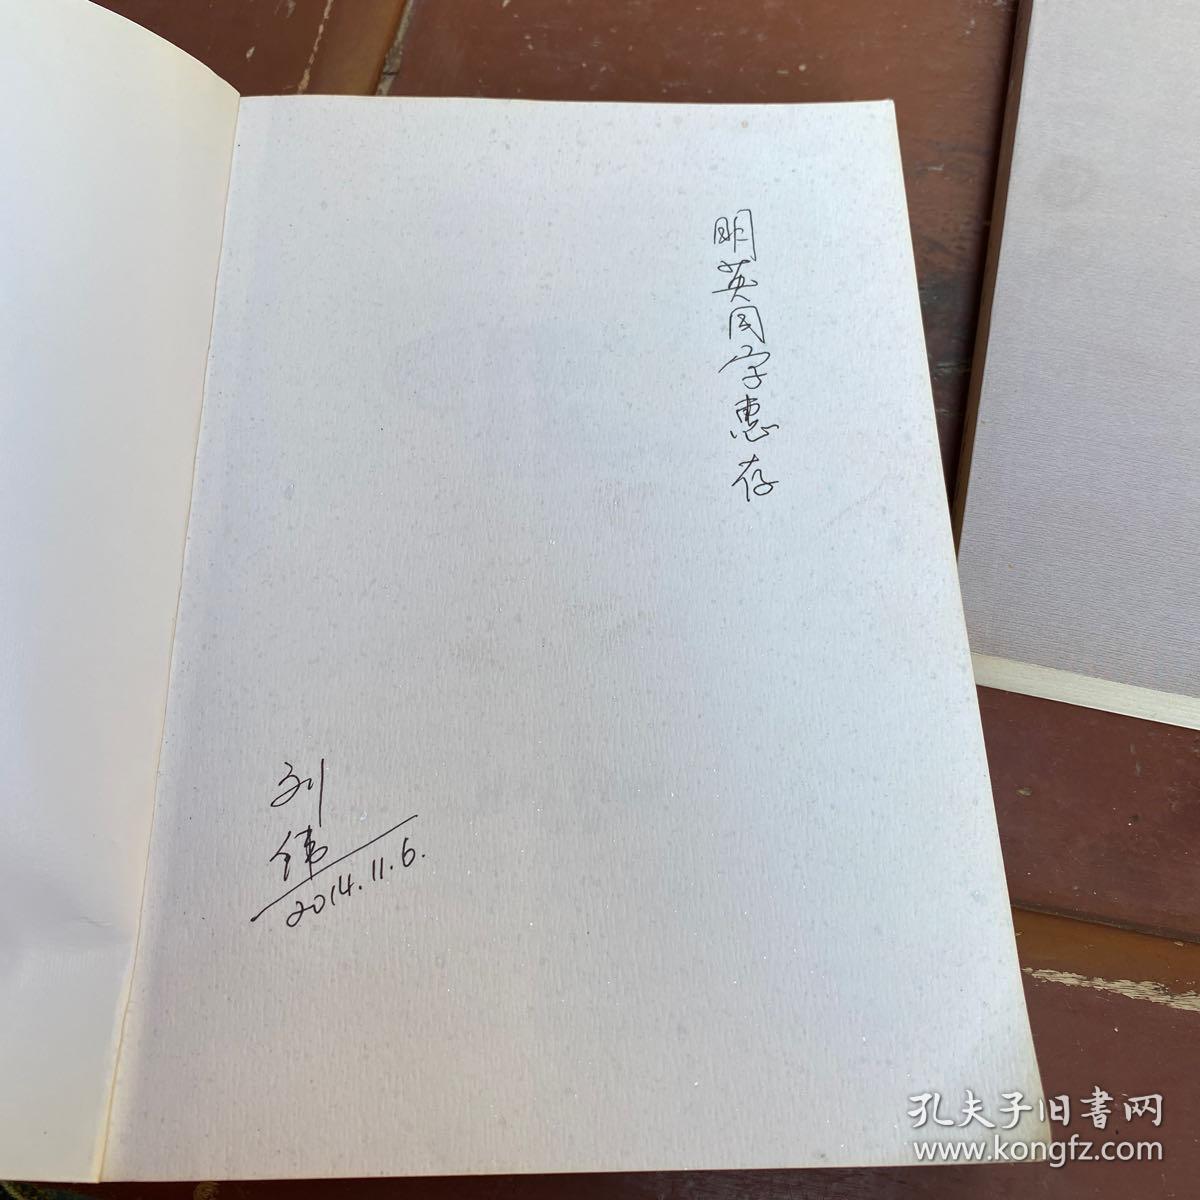 明英同学惠存
刘
伟
2014.11.6.
孔夫子旧书网
www.kongfz.com